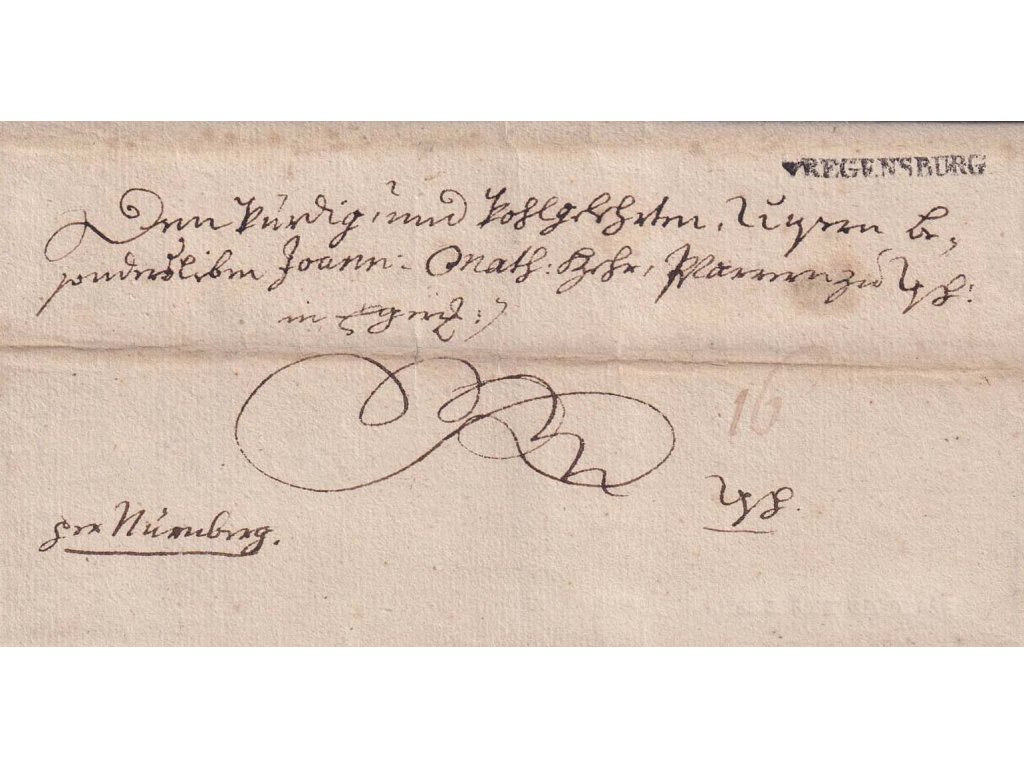 v. REGENSBURG
Dem Würdig, und Wohlgelehrten, Unsern Be-
sonderslieben Joann: Math: Pfarrern zu Asch:
in
16
Asch.
per Nürnberg.